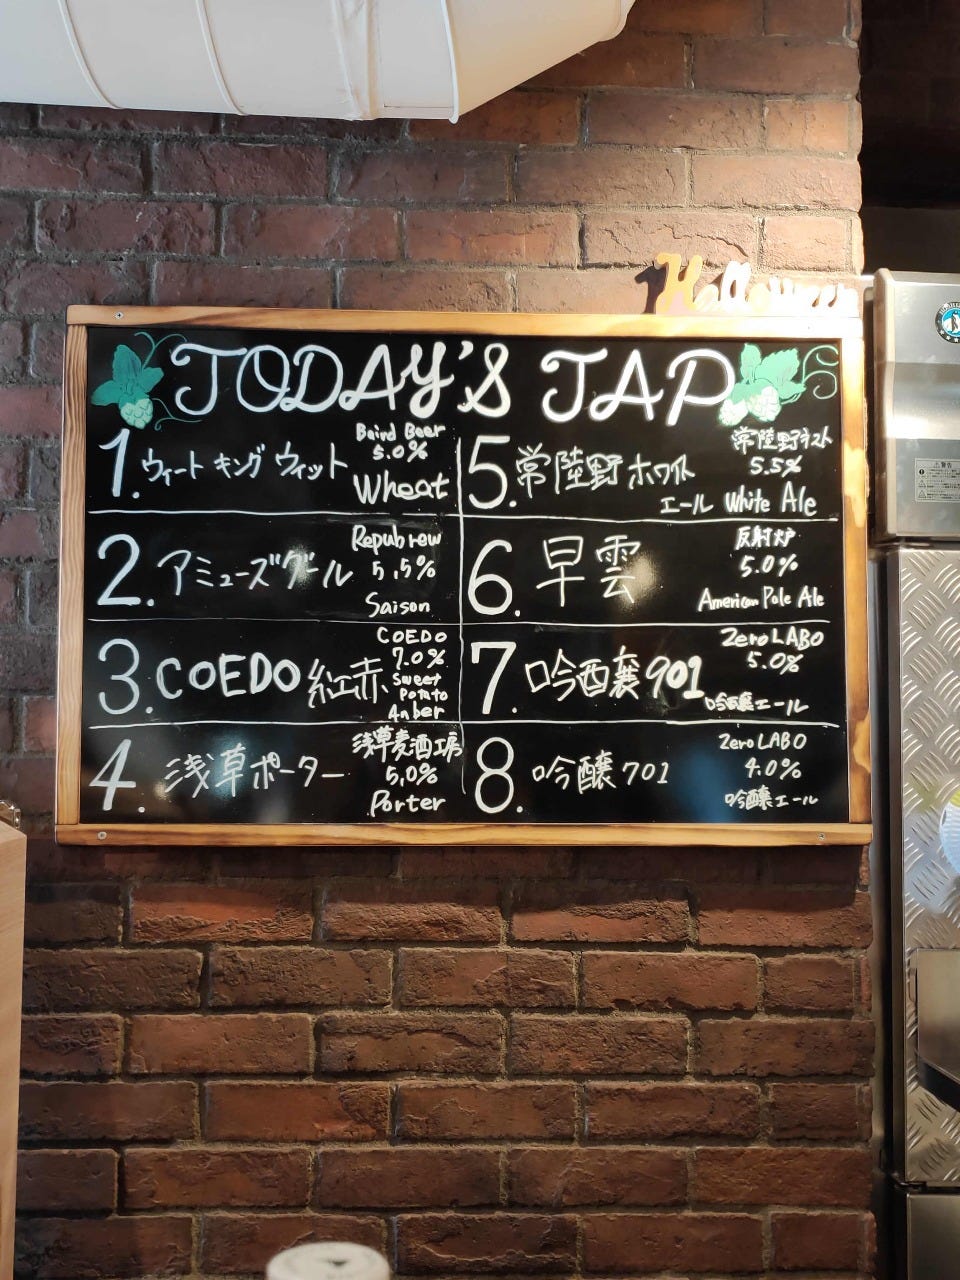 Halloween
TODAY'S TAP
1. ウィート キング ウィット
Baird Beer
5.0%
Wheat
2. アミューズグール
Repubrew
5.5%
Saison
3. COEDO 紅赤
COEDO
7.0%
Sweet
Potato
Anber
4. 浅草ポーター
浅草麦酒工房
5.0%
Porter
5. 常陸野ホワイト
エール White Ale
常陸野ネスト
5.5%
6. 早雲
反射炉
5.0%
American Pale Ale
7. 吟醸901
Zero LABO
5.0%
吟醸エール
8. 吟醸701
Zero LABO
4.0%
吟醸エール